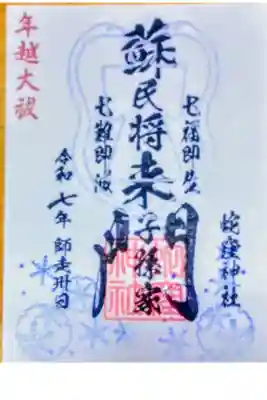 年越大祓
蛇窪神社
七福即生
蘇民将来子孫家門
七難即滅
令和七年師走卅日